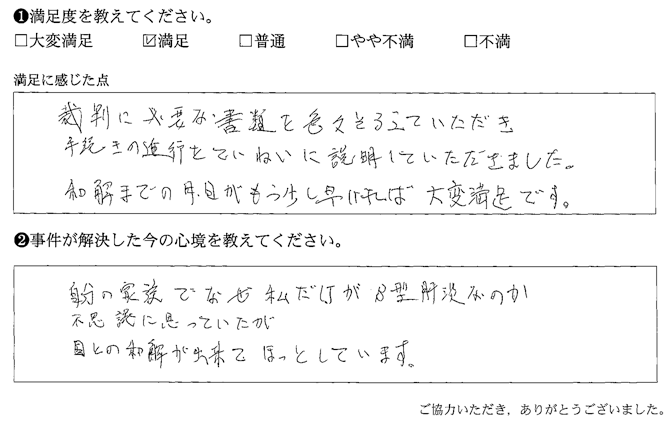 ❶満足度を教えてください。
□大変満足 ☑満足 □普通 □やや不満 □不満
満足に感じた点
裁判に必要な書類を色々そろえていただき
手続きの進行をていねいに説明していただきました。
和解までの月日がもう少し早ければ大変満足です。
❷事件が解決した今の心境を教えてください。
自分の家族でなぜ私だけがB型肝炎なのか
不思議に思っていたが
国との和解が出来てほっとしています。
ご協力いただき，ありがとうございました。